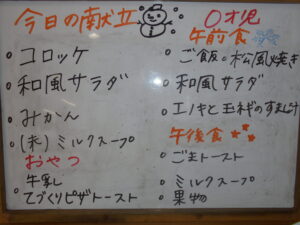 今日の献立
・コロッケ
・和風サラダ
・みかん
・(米)ミルクスープ
おやつ
・牛乳
てづくりピザトースト
0才児
午前食
・ご飯・松風焼き
・和風サラダ
・エノキと玉ネギのすまし汁
午後食
・ごまトースト
・ミルクスープ
・果物